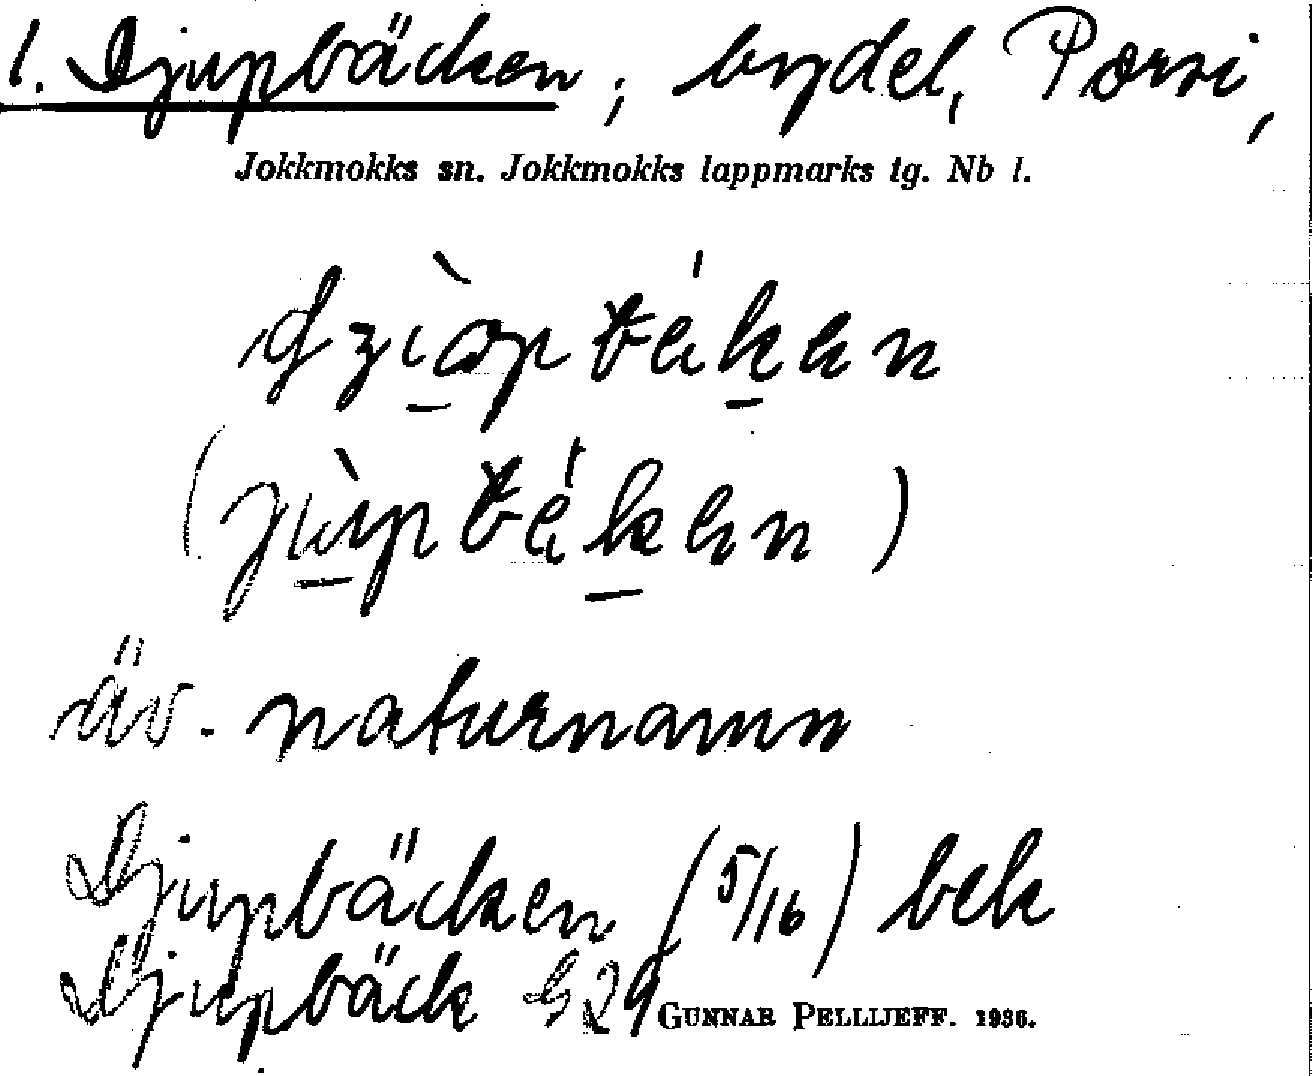 1. Djupbäcken, bydel, Porsi,
Jokkmokks sn. Jokkmokks lappmarks tg. Nb l.
äv. naturnamn
Djupbäcken (5/16) bek
Djupbäck G 29
GUNNAR PELLIJEFF. 1936.